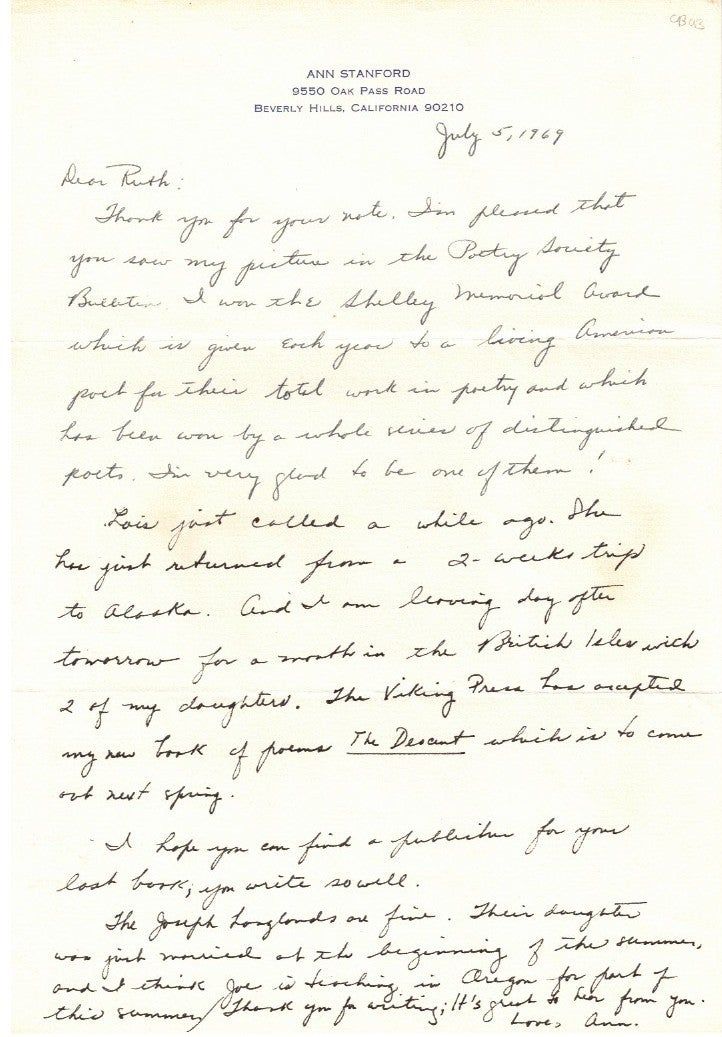 CB03
ANN STANFORD
9550 OAK PASS ROAD
BEVERLY HILLS, CALIFORNIA 90210
July 5, 1969
Dear Ruth:
Thank you for your note. I'm pleased that
you saw my picture in the Poetry Society
Bulletin. I won the Shelley Memorial Award
which is given each year to a living American
poet for their total work in poetry and which
has been won by a whole series of distinguished
poets. I'm very glad to be one of them!
Lois just called a while ago. She
has just returned from a 2-weeks trip
to Alaska. And I am leaving day after
tomorrow for a month in the British Isles with
2 of my daughters. The Viking Press has accepted
my new book of poems The Descent which is to come
out next spring.
I hope you can find a publisher for your
last book; you write so well.
The Joseph Langlands are fine. Their daughter
was just married at the beginning of the summer,
and I think Joe is teaching in Oregon for part of
this summer. Thank you for writing; It's great to hear from you.
Love, Ann.